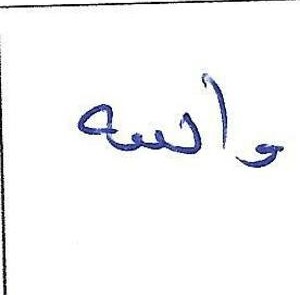 والسه